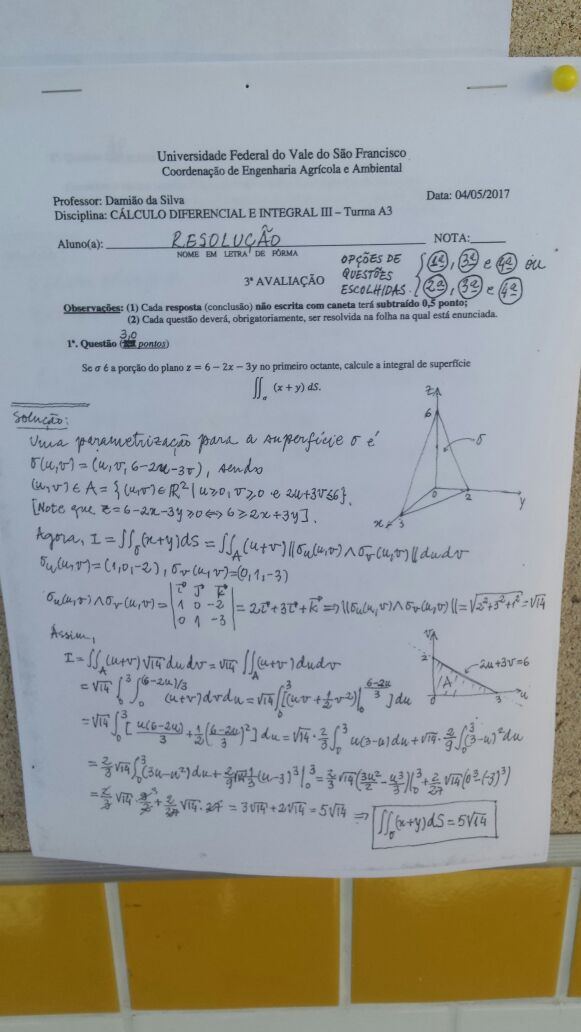 Universidade Federal do Vale do São Francisco
Coordenação de Engenharia Agrícola e Ambiental
Professor: Damião da Silva Data: 04/05/2017
Disciplina: CÁLCULO DIFERENCIAL E INTEGRAL III – Turma A3
Aluno(a): RESOLUÇÃO NOTA:
NOME EM LETRA DE FÔRMA
3ª AVALIAÇÃO
OPÇÕES DE QUESTÕES ESCOLHIDAS { 1ª, 3ª e 4ª ou
2ª, 3ª e 4ª
Observações: (1) Cada resposta (conclusão) não escrita com caneta terá subtraído 0,5 ponto;
(2) Cada questão deverá, obrigatoriamente, ser resolvida na folha na qual está enunciada.
3,0
1ª. Questão ( pontos)
Se σ é a porção do plano z = 6 – 2x – 3y no primeiro octante, calcule a integral de superfície
∬σ (x + y) dS.
Solução:
Uma parametrização para a superfície σ é
σ(u,v) = (u, v, 6-2u-3v), sendo
(u,v) ∈ A = {(u,v) ∈ ℝ² | u≥0, v≥0 e 2u+3v≤6}.
[Note que z = 6-2x-3y ≥ 0 ⇔ 6 ≥ 2x+3y].
z
6
σ
0
2
y
x
3
Agora, I = ∬σ(x+y)dS = ∬A(u+v)||σu(u,v) ∧ σv(u,v)||dudv
σu(u,v) = (1,0,-2), σv(u,v) = (0,1,-3)
σu(u,v) ∧ σv(u,v) = |i⃗ j⃗ k⃗; 1 0 -2; 0 1 -3| = 2i⃗+3j⃗+k⃗ ⇒ ||σu(u,v) ∧ σv(u,v)|| = √(2²+3²+1²) = √14
Assim,
I = ∬A(u+v)√14 dudv = √14 ∬A(u+v)dudv
v
2
2u+3v=6
A
0
3
u
= √14 ∫₀³ ∫₀^((6-2u)/3) (u+v)dvdu = √14 ∫₀³ [(uv + 1/2 v²)|₀^((6-2u)/3)] du
= √14 ∫₀³ [u(6-2u)/3 + 1/2((6-2u)/3)²] du = √14 · 2/3 ∫₀³ u(3-u)du + √14 · 2/9 ∫₀³ (3-u)² du
= 2/3 √14 ∫₀³ (3u-u²)du + 2/9 √14 1/3 (u-3)³|₀³ = 2/3 √14 (3u²/2 - u³/3)|₀³ + 2/27 √14 (0³-(-3)³)
= 2/3 √14 · 9/2 + 2/27 √14 · 27 = 3√14 + 2√14 = 5√14 ⇒ ∬σ(x+y)dS = 5√14